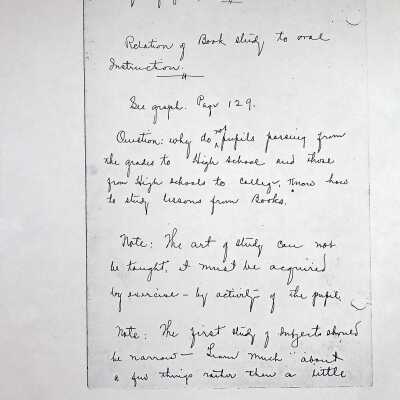 Relation of Book study to oral
Instruction.
See graph. Page 129.
Question: why do not pupils passing from
the grades to High school and those
from High schools to college, know how
to study lessons from Books.
Note: The art of study can not
be taught, it must be acquired
by exercise - by activity of the pupil.
Note: The first study of subjects should
be narrow - Learn much "about
a few things rather than a little